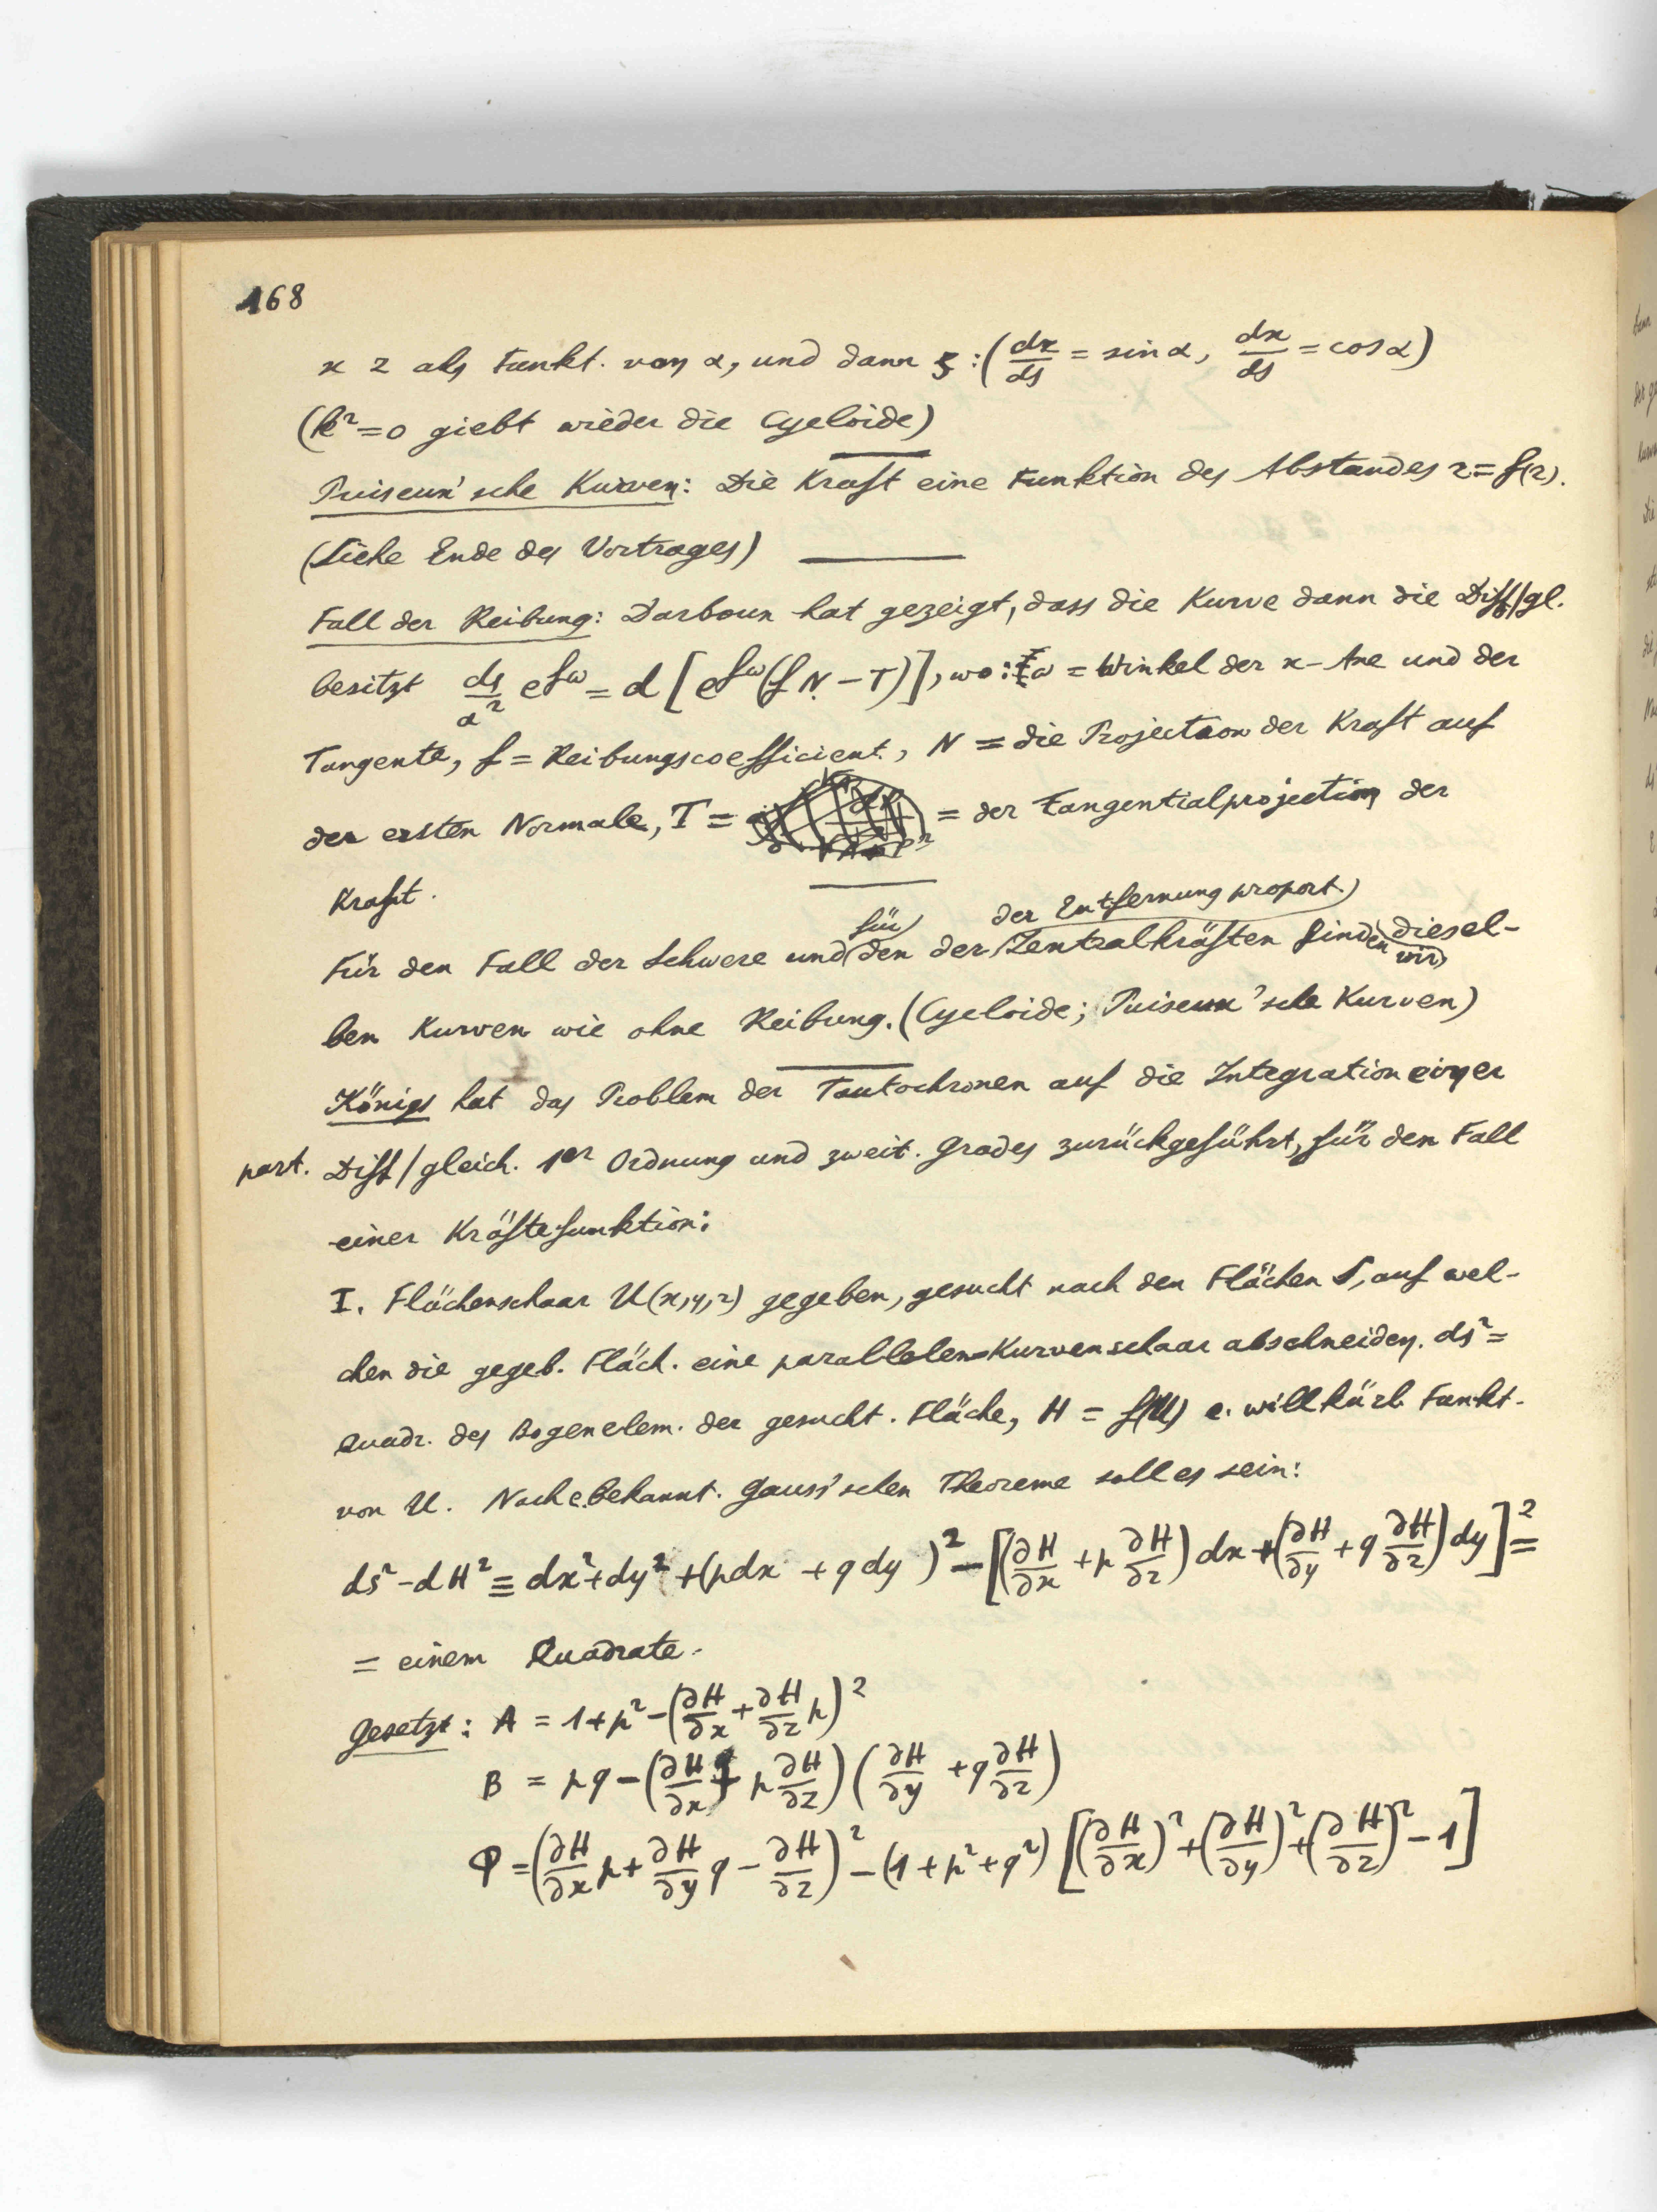 168
x z als Funkt. von α, und dann ξ : (dx/ds = sin α, dx/ds = cos α)
(k² = 0 giebt wieder die Cycloide)
Puiseux'sche Kurven: Die Kraft eine Funktion des Abstandes r = f(r).
(Siehe Ende des Vortrages)
Fall der Reibung: Darboux hat gezeigt, dass die Kurve dann die Diff/gl.
besitzt ds/α² e^fω = d [e^fω (f N − T)], wo: ω = Winkel der x-Axe und der
Tangente, f = Reibungscoefficient, N = die Projection der Kraft auf
der ersten Normale, T = = der Tangentialprojection der
Kraft.
Für den Fall der Schwere und für den der der Entfernung proport. Zentralkräften finden wir diesel-
ben Kurven wie ohne Reibung. (Cycloide; Puiseux'sche Kurven)
Königs hat das Problem der Tautochronen auf die Integration einer
part. Diff/gleich. 1er Ordnung und zweit. Grades zurückgeführt, für den Fall
einer Kräftefunktion:
I. Flächenschaar U(x,y,z) gegeben, gesucht nach den Flächen S, auf wel-
chen die gegeb. Fläch. eine parallelen-Kurvenschaar abschneiden. ds² =
Quadr. des Bogenelem. der gesucht. Fläche, H = f(U) e. willkürl. Funkt.
von U. Nach e. bekannt. Gauss'schen Theoreme soll es sein:
ds² − dH² ≡ dx² + dy² + (pdx + qdy)² − [(∂H/∂x + p ∂H/∂z) dx + (∂H/∂y + q ∂H/∂z) dy]² =
= einem Quadrate.
Gesetzt: A = 1 + p² − (∂H/∂x + ∂H/∂z p)²
B = pq − (∂H/∂x + p ∂H/∂z) (∂H/∂y + q ∂H/∂z)
Φ = (∂H/∂x p + ∂H/∂y q − ∂H/∂z)² − (1 + p² + q²) [(∂H/∂x)² + (∂H/∂y)² + (∂H/∂z)² − 1]